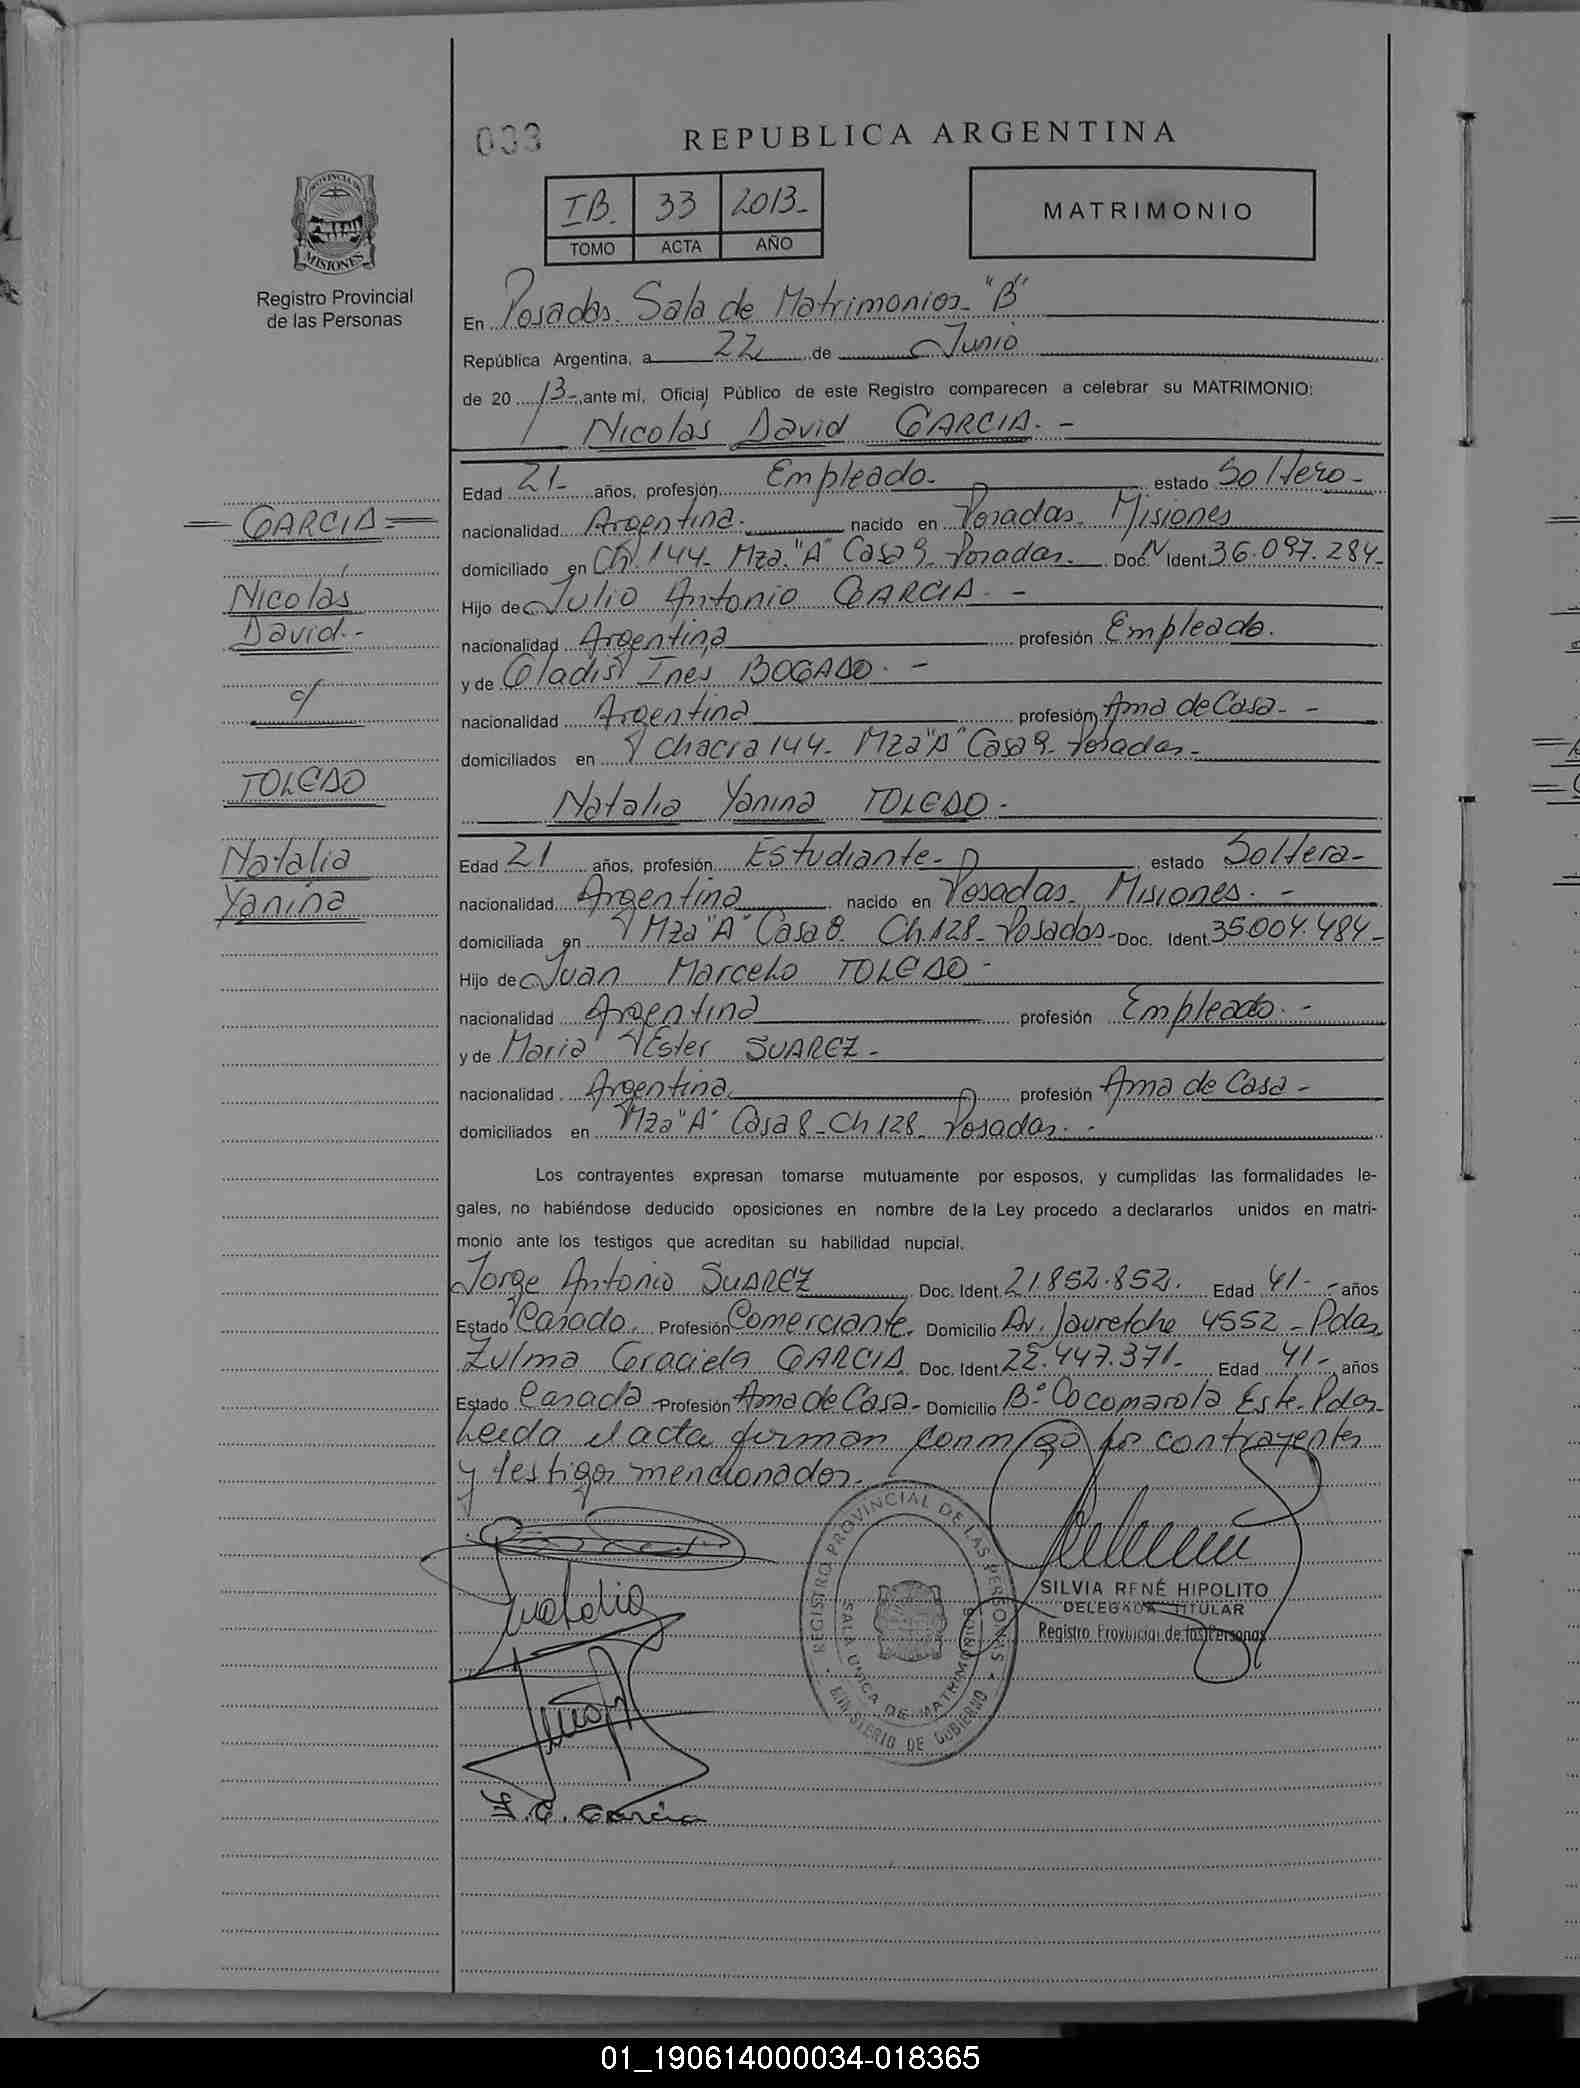 033
REPUBLICA ARGENTINA
PROVINCIA DE
MISIONES
Registro Provincial
de las Personas
IB. 33 2013-
TOMO ACTA AÑO
MATRIMONIO
En Posadas. Sala de Matrimonios- "B"
República Argentina, a 22 de Junio
de 2013-, ante mí, Oficial Público de este Registro comparecen a celebrar su MATRIMONIO:
Nicolás David GARCIA. -
Edad 21- años, profesión Empleado- estado Soltero-
nacionalidad Argentina. nacido en Posadas. Misiones
domiciliado en Ch. 144- Mza. "A" Casa 9- Posadas. Doc. N Ident 36.097.284-
Hijo de Julio Antonio GARCIA. -
nacionalidad Argentina profesión Empleado.
y de Gladis Inés BOGADO. -
nacionalidad Argentina profesión Ama de Casa- -
domiciliados en Chacra 144- Mza "A" Casa 9- Posadas-
Natalia Yanina TOLEDO-
Edad 21 años, profesión Estudiante- estado Soltera-
nacionalidad Argentina nacido en Posadas- Misiones. -
domiciliada en Mza "A" Casa 8. Ch. 128- Posadas- Doc. Ident. 35.004.484-
Hijo de Juan Marcelo TOLEDO-
nacionalidad Argentina profesión Empleado. -
y de Maria Ester SUAREZ-
nacionalidad Argentina. profesión Ama de Casa-
domiciliados en Mza "A" Casa 8- Ch 128- Posadas. -
Los contrayentes expresan tomarse mutuamente por esposos, y cumplidas las formalidades le-
gales, no habiéndose deducido oposiciones en nombre de la Ley procedo a declararlos unidos en matri-
monio ante los testigos que acreditan su habilidad nupcial.
Jorge Antonio SUAREZ Doc. Ident. 21.852.852. Edad 41- - años
Estado Casado. Profesión Comerciante. Domicilio Av. Jauretche 4552- Pdas.
Zulma Graciela GARCIA. Doc. Ident. 22.447.371- Edad 41-, años
Estado Casada- Profesión Ama de Casa- Domicilio Bº Cocomarola Este- Pdas-
Leida el acta firman conmigo los contrayentes
y testigos mencionados-
GARCIA
Nicolás
David.-
c/
TOLEDO
Natalia
Yanina
Natalia
Z. G. Garcia
REGISTRO PROVINCIAL DE LAS PERSONAS
SALA UNICA DE MATRIMONIOS
MINISTERIO DE GOBIERNO
SILVIA RENÉ HIPOLITO
DELEGADA TITULAR
Registro Provincial de las Personas
01_190614000034-018365